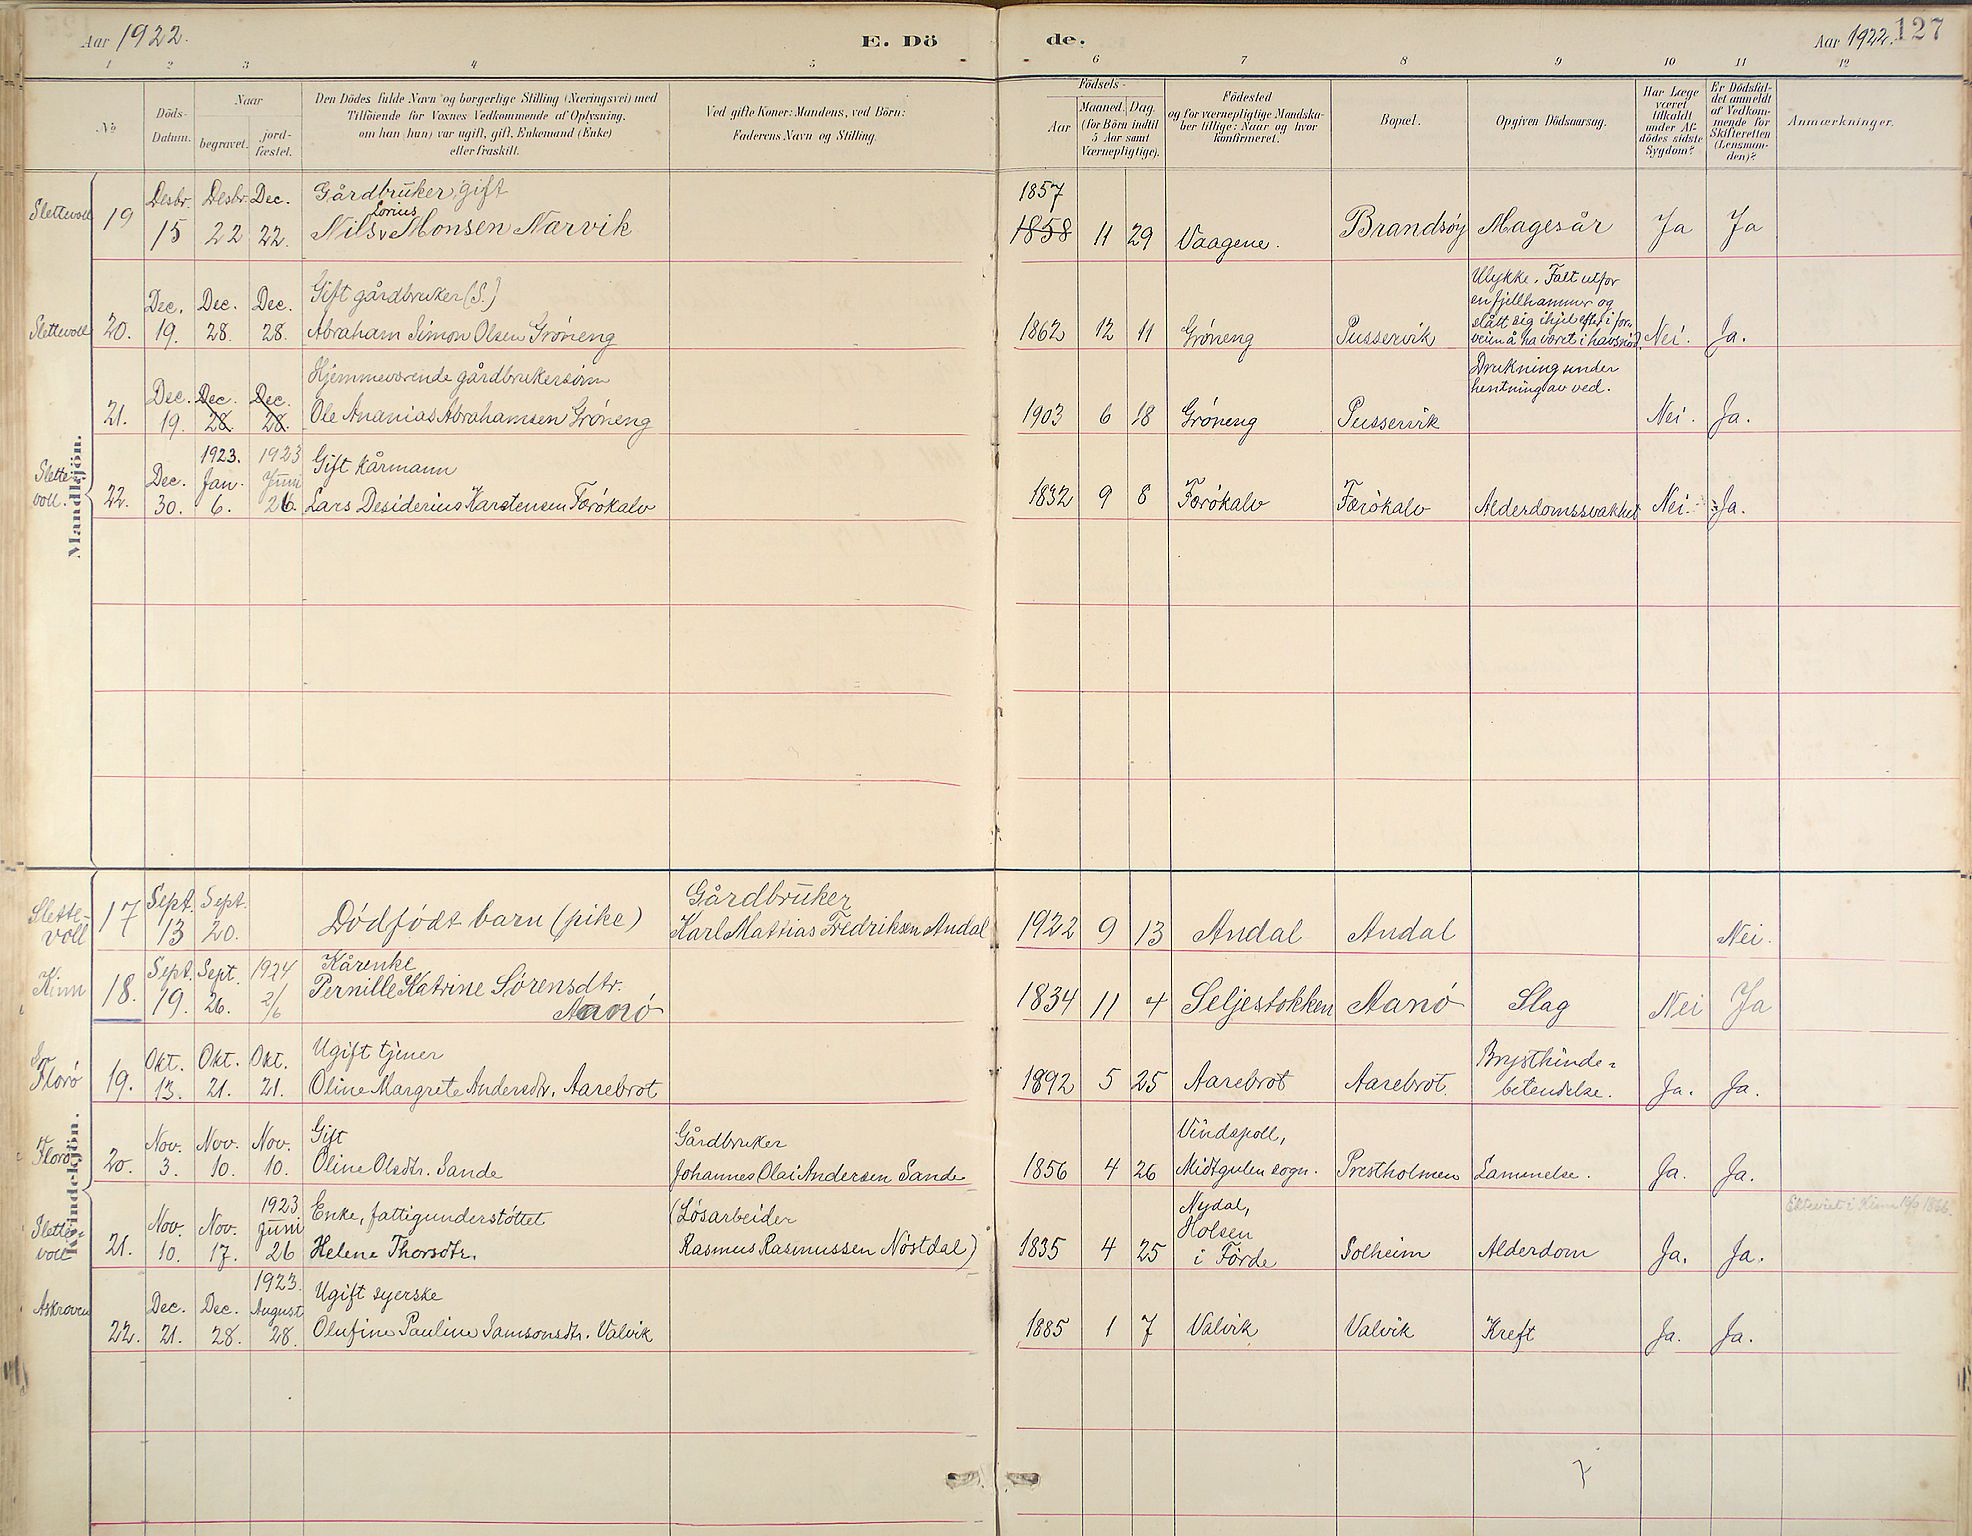 Aar 1922.
E. Dö
de.
Aar 1922.
127
1 2 3 4 5 6 7 8 9 10 11 12
No
Döds-
Datum.
Naar
begravet.
jord-
fæstet.
Den Dödes fulde Navn og borgerlige Stilling (Næringsvei) med
Tilföiende for Voxnes Vedkommende af Oplysning,
om han (hun) var ugift, gift, Enkemand (Enke)
eller fraskilt.
Ved gifte Koner: Mandens, ved Börn:
Faderens Navn og Stilling.
Födsels-
Aar
Maaned. Dag.
(for Börn indtil
5 Aar samt
Værnepligtige).
Födested
og for værnepligtige Mandska-
ber tillige: Naar og hvor
konfirmeret.
Bopæl.
Opgiven Dödsaarsag.
Har Læge
været
tilkaldt
under Af-
dödes sidste
Sygdom?
Er Dödsfal-
det anmeldt
af Vedkom-
mende for
Skifteretten
(Lensman-
den)?
Anmærkninger.
Mandkjön.
Slettevoll 19
Desbr. 15
Desbr. 22
Dec. 22.
Gårdbruker, gift
Lorius
Nils Monsen Narvik
1857
1858 11 29
Vaagene.
Brandsöy
Magesår
Ja
Ja
Slettevoll 20.
Dec. 19.
Dec. 28.
Dec. 28.
Gift gårdbruker (S.)
Abraham Simon Olsen Gröneng
1862 12 11
Gröneng
Pusservik
Ulykke. Falt utfor
en fjellhammer og
slått sig ihjel efter i for-
veien å ha været i havsnöd.
Nei.
Ja.
21.
Dec. 19.
Dec. 28.
Dec. 28.
Hjemmeværende gårdbrukersönn
Ole Ananias Abrahamsen Gröneng
1903 6 18
Gröneng
Pusservik
Drukning under
hentning av ved.
Nei.
Ja.
Slette-
voll. 22.
Dec. 30.
1923. Jan. 6.
1923 Juni 26.
Gift kårmann
Lars Desiderius Karstensen Færökalv
1832 9 8
Færökalv
Færökalv
Alderdomssvakhet
Nei.
Ja.
Kvindekjön.
Slette-
voll 17
Sept. 13
Sept. 20.
Dödfödt barn (pike)
Gårdbruker
Karl Mattias Fredriksen Andal
1922 9 13
Andal
Andal
Nei.
Kinn 18.
Sept. 19.
Sept. 26.
1924 2/6
Kårenke
Pernille Katrine Sörensdtr.
Aanö
1834 11 4
Seljestokken
Aanö
Slag
Nei
Ja
Florö 19.
Okt. 13.
Okt. 21.
Okt. 21.
Ugift tjener
Oline Margrete Andersdtr. Aarebrot
1892 5 25
Aarebrot
Aarebrot.
Brysthinde-
betendelse.
Ja.
Ja.
Florö 20.
Nov. 3.
Nov. 10.
Nov. 10.
Gift
Oline Olsdtr. Sande
Gårdbruker
Johannes Olai Andersen Sande
1856 4 26
Vindspoll,
Midtgulen sogn.
Prestholmen
Lammelse.
Ja.
Ja.
Slette-
voll 21.
Nov. 10.
Nov. 17.
1923 juni 26
Enke, fattigunderstöttet
Helene Thorsdtr.
(Lösarbeider
Rasmus Rasmussen Nöstdal)
1835 4 25
Nydal,
Holsen
i Förde
Solheim
Alderdom
Ja.
Ja.
Ekteviet i Kinn 1866.
Askroven 22.
Dec. 21.
Dec. 28.
1923. August 28.
Ugift syerske
Olufine Pauline Samsonsdtr. Valvik
1885 1 7
Valvik
Valvik
Kreft
Ja.
Ja.
7